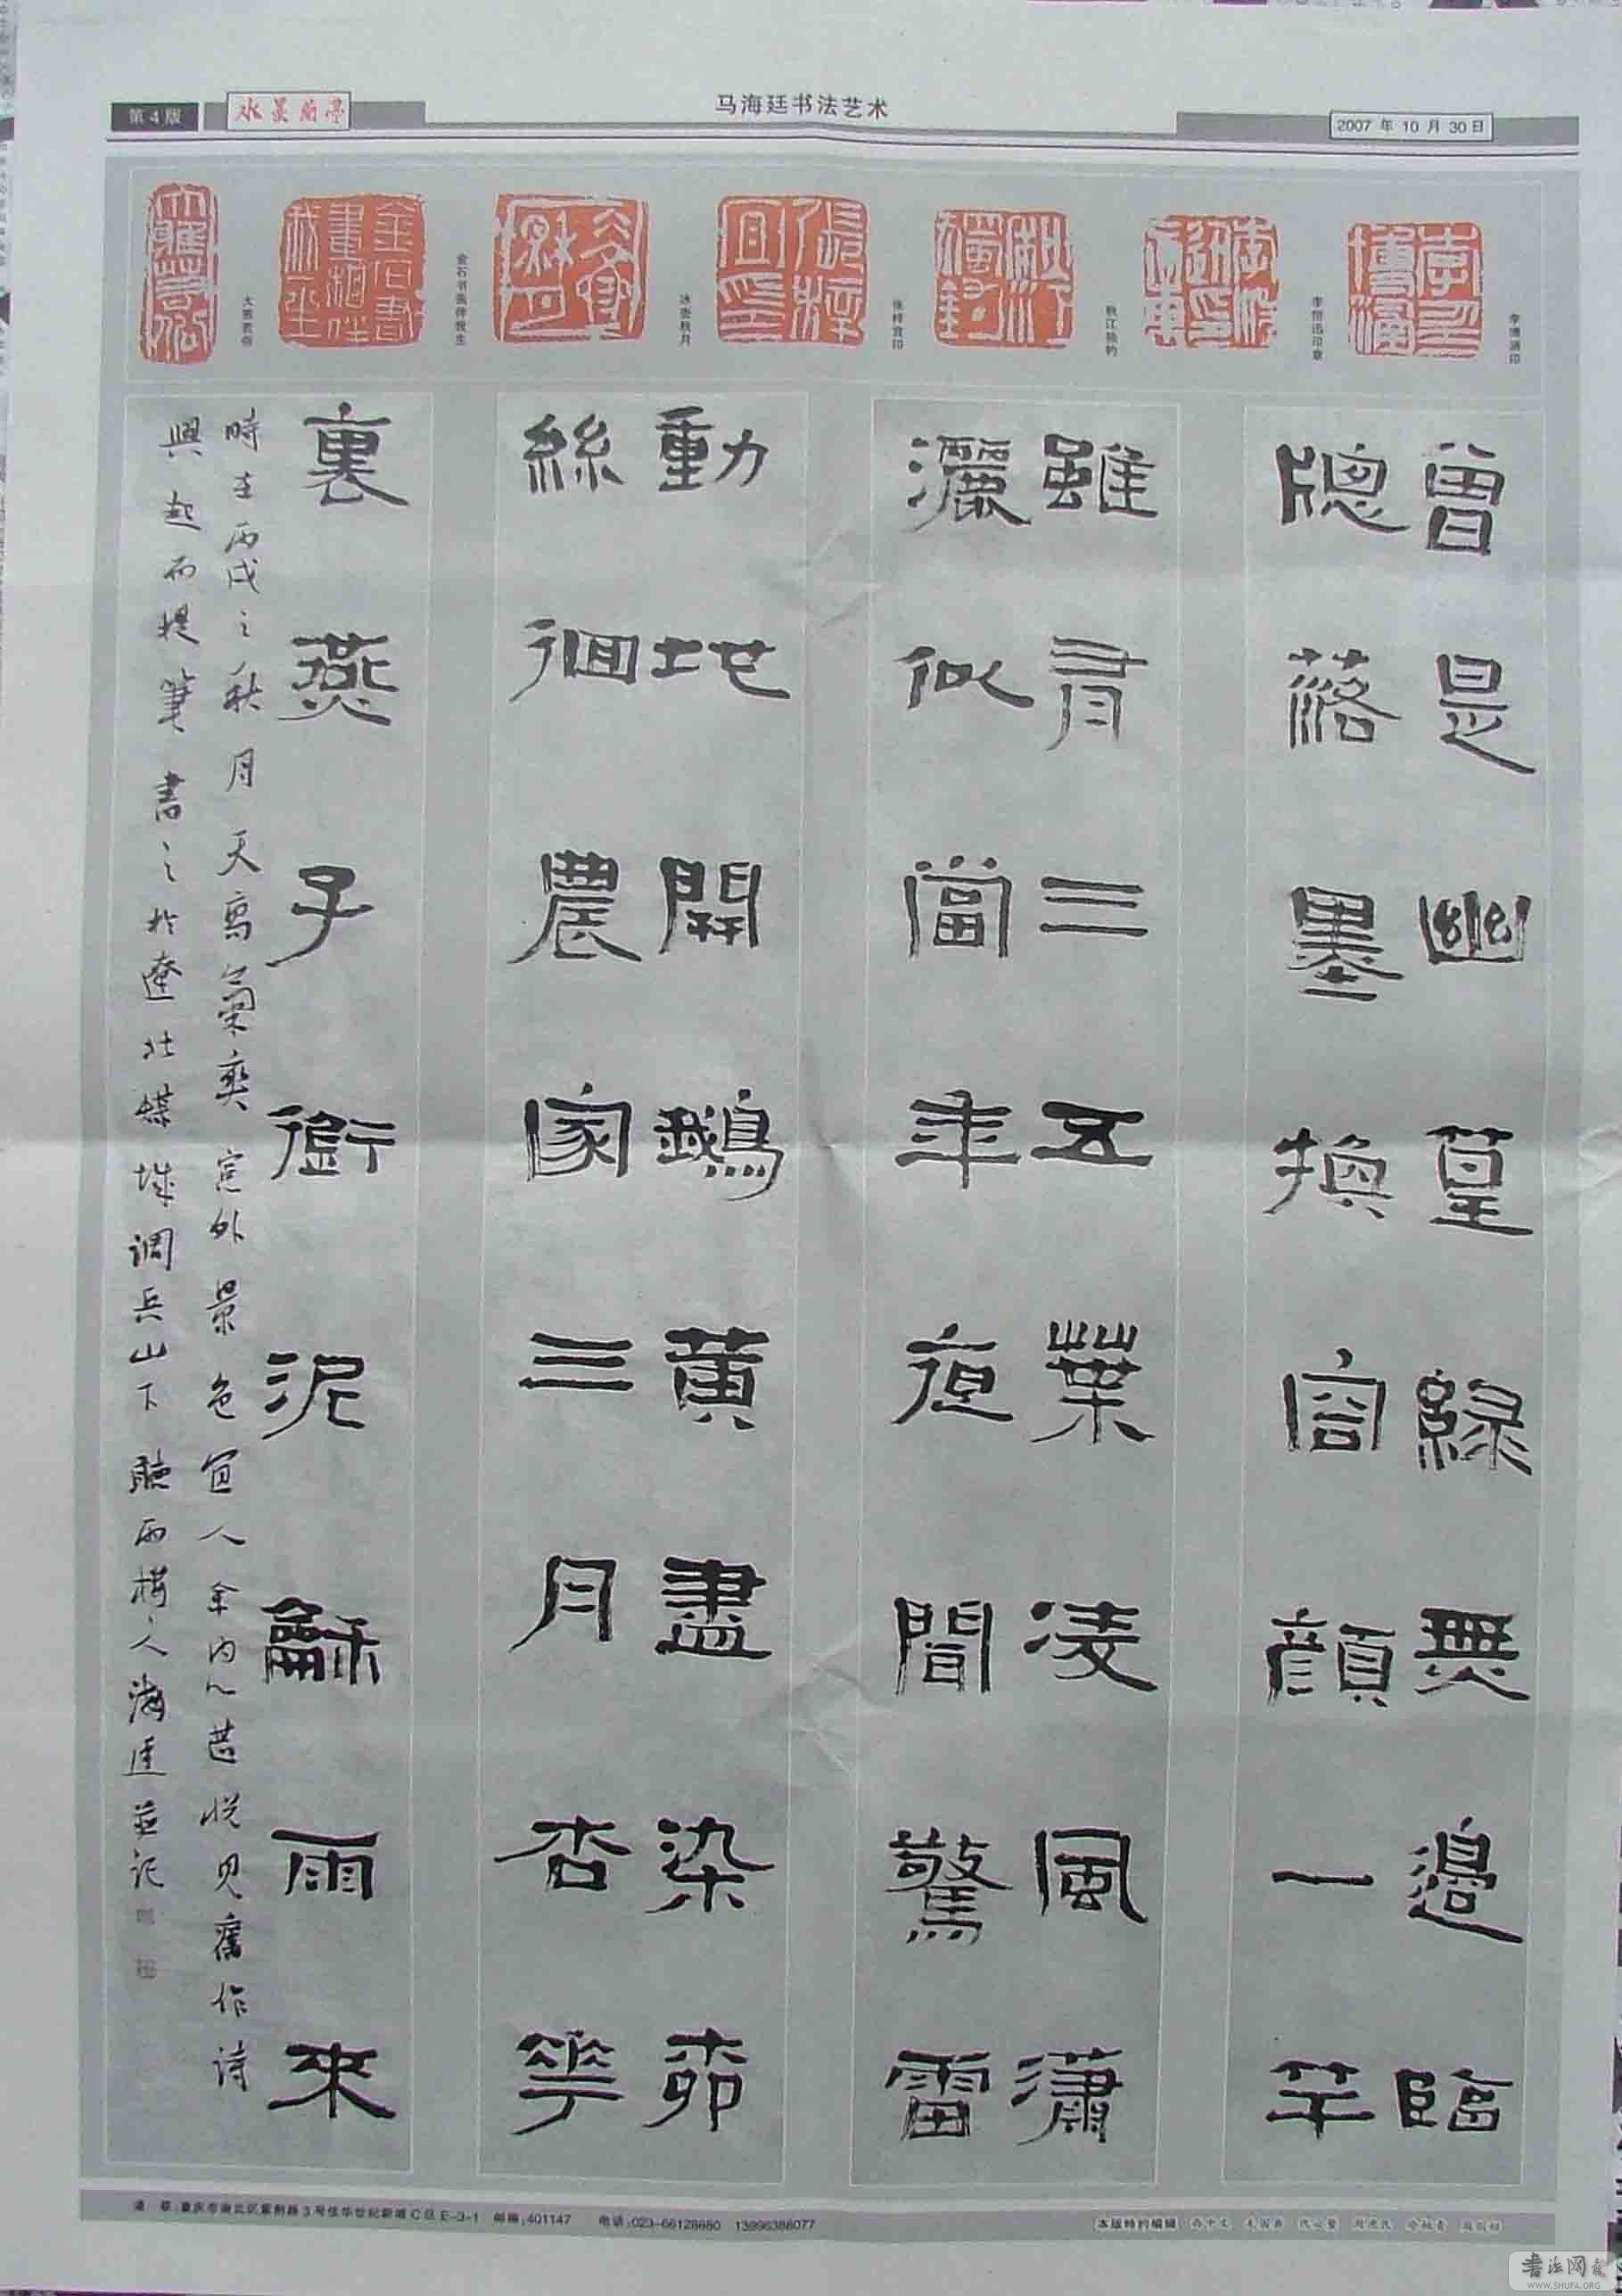 第4版
水墨兰亭
马海廷书法艺术
2007年10月30日
李博涵印
李恒迅印章
秋江独钓
张梓宜印
冰壶秋月
金石书画伴我生
大雁若俗
曾是幽篁綠無邊臨
牕落墨換容顔一竿
雖有三五葉凌風瀟
灑似當年夜間驚雷
動地開鵝黄盡染柳
絲徊農家三月杏花
裏燕子銜泥龢雨來
時在丙戌之秋月天高氣爽窓外景色宜人余内心甚悦見舊作詩
興起而提筆書之於遼北煤城调兵山下聽雨樓人海廷并記
邮编:401147
电话:023-66128680 13996388077
本版特约编辑
书法网
WWW.SHUFA.ORG